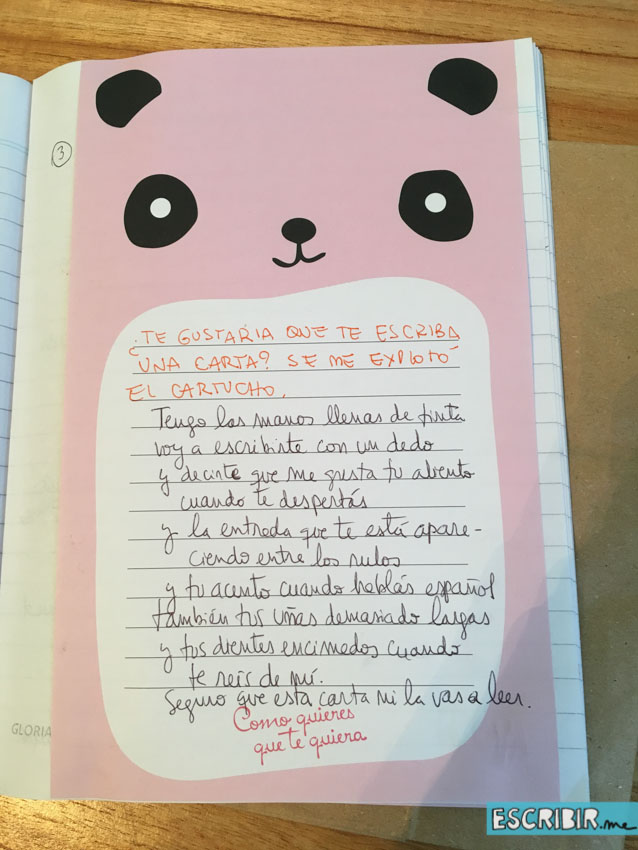 3
¿TE GUSTARIA QUE TE ESCRIBA
UNA CARTA? SE ME EXPLOTÓ
EL CARTUCHO.
Tengo las manos llenas de tinta
voy a escribirte con un dedo
y decirte que me gusta tu aliento
cuando te despertás
y la entrada que te está apare-
ciendo entre los rulos
y tu acento cuando hablás español
también tus uñas demasiado largas
y tus dientes encimados cuando
te reís de mí.
Seguro que esta carta ni la vas a leer.
Como quieres
que te quiera
GLORIA
ESCRIBIR.me